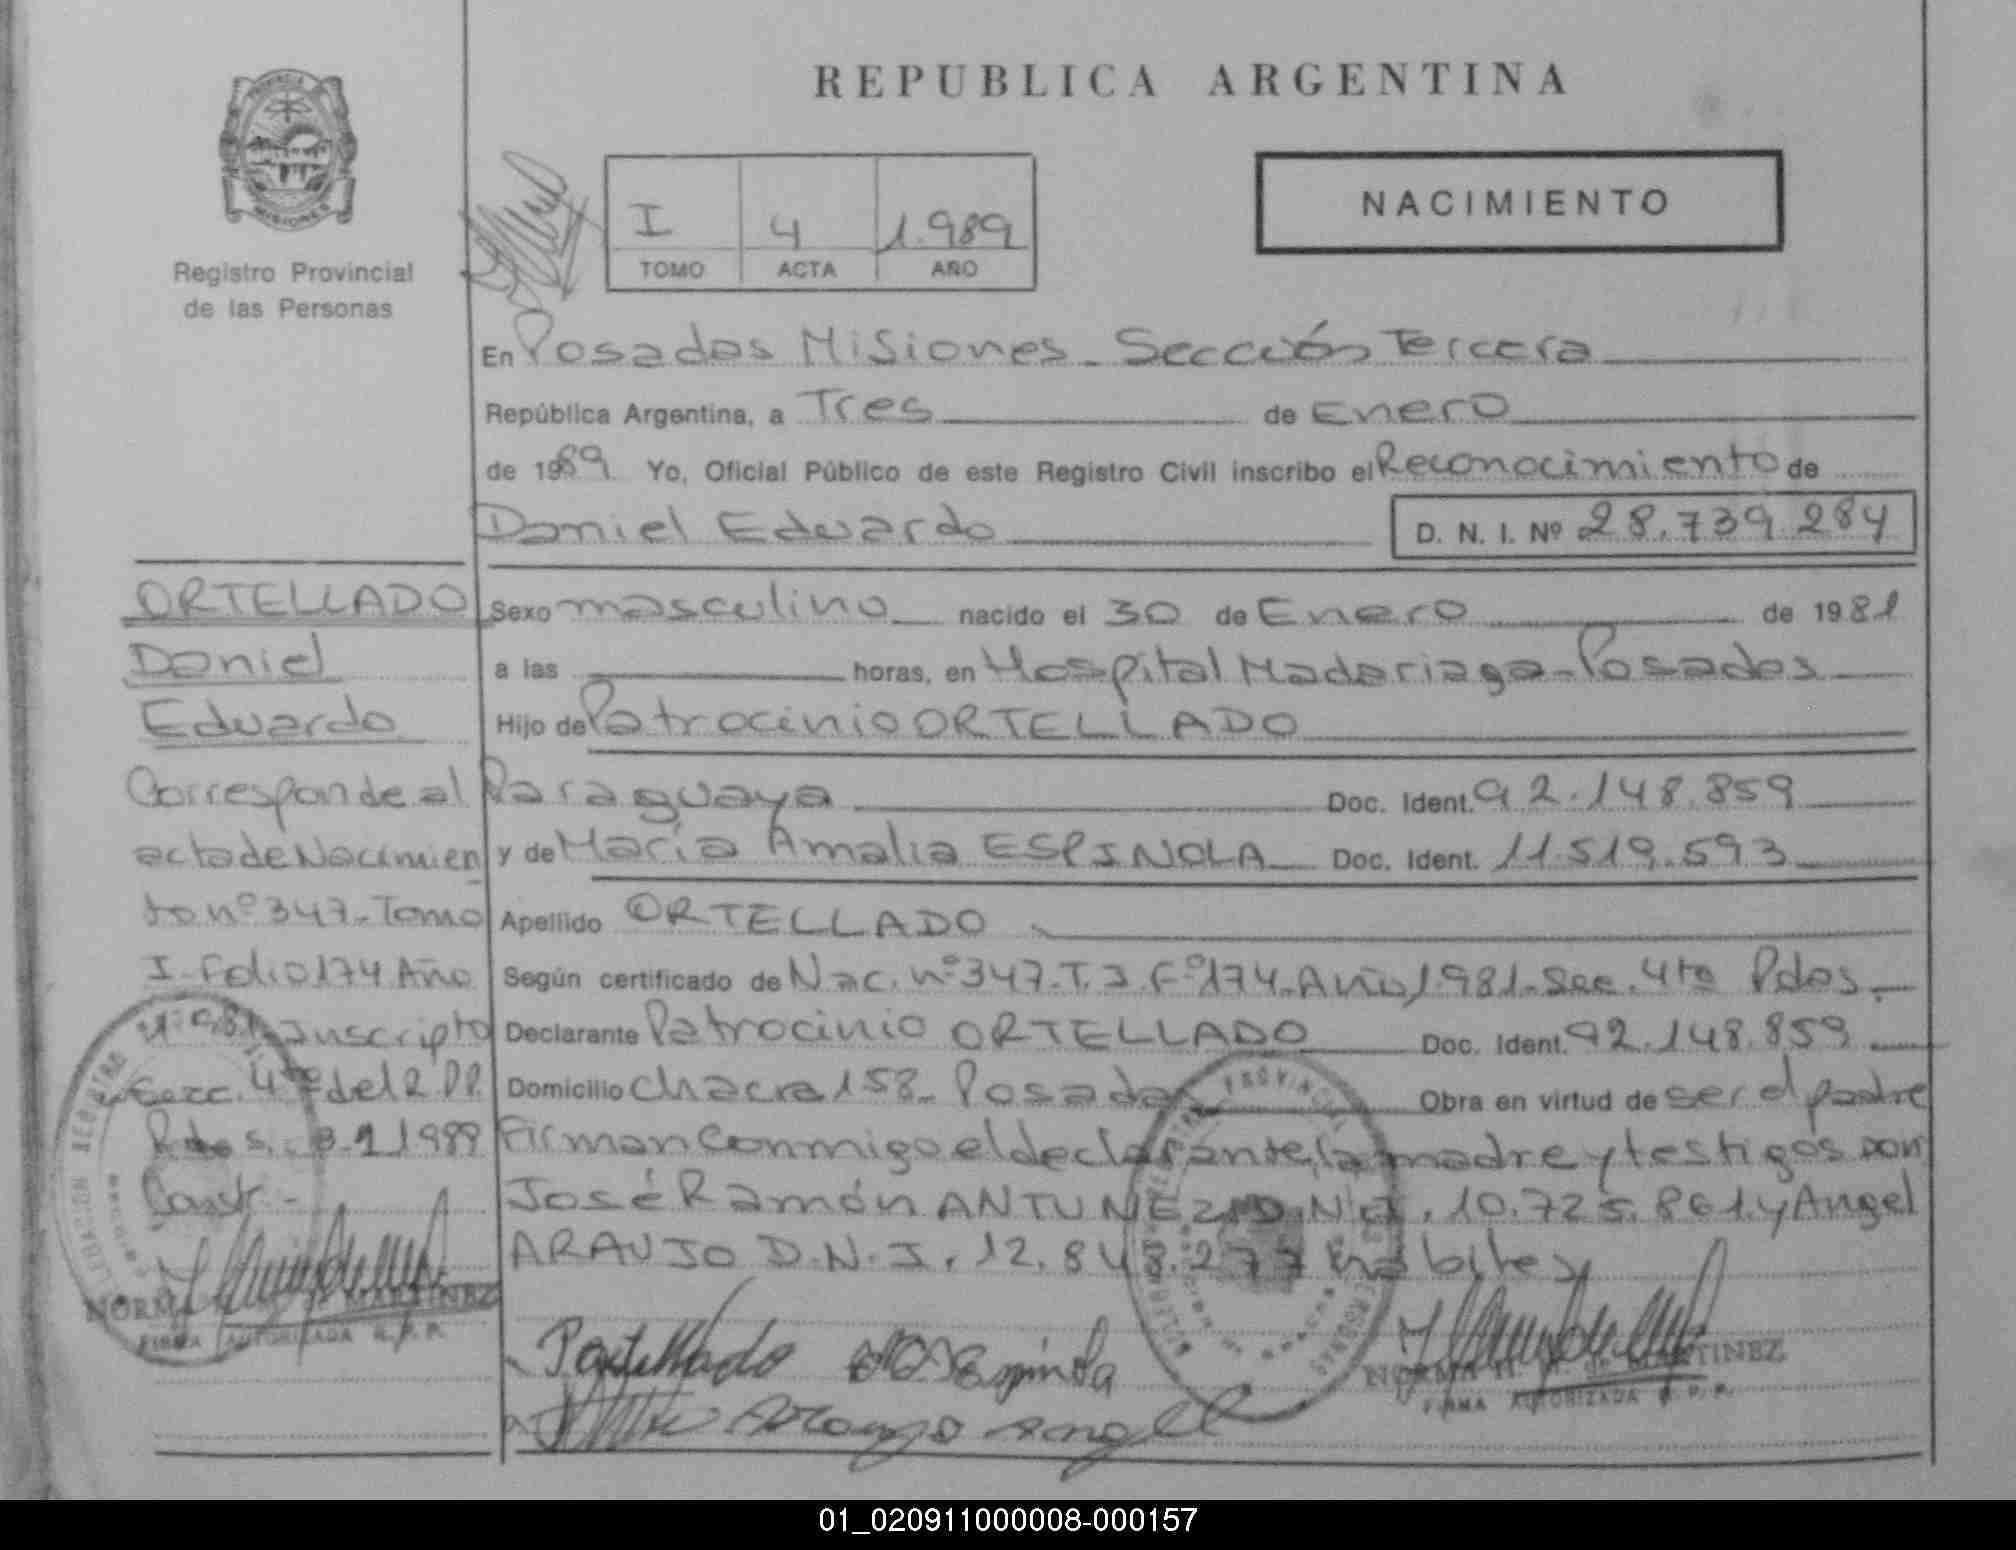 REPUBLICA ARGENTINA
PROVINCIA
MISIONES
Registro Provincial
de las Personas
I 4 1.989
TOMO ACTA AÑO
NACIMIENTO
En Posadas Misiones - Sección Tercera
República Argentina, a Tres de Enero
de 1989 Yo, Oficial Público de este Registro Civil inscribo el Reconocimiento de
Daniel Eduardo D. N. I. Nº 28.739.284
Sexo masculino nacido el 30 de Enero de 1981
a las horas, en Hospital Madariaga - Posadas
Hijo de Patrocinio ORTELLADO
Paraguaya Doc. Ident. 92.148.859
y de María Amalia ESPINOLA Doc. Ident. 11.519.593
Apellido ORTELLADO
Según certificado de Nac. nº 347. T. I. Fº 174. Año 1.981. Sec. 4ta Pdas.
Declarante Patrocinio ORTELLADO Doc. Ident. 92.148.859
Domicilio Chacra 158 - Posadas Obra en virtud de ser el padre
Firman conmigo el declarante, la madre y testigos don
José Ramón ANTUNEZ D.N.I. 10.725.861. y Angel
ARAUJO D.N.I. 12.848.277 habiles
ORTELLADO
Daniel
Eduardo
Corresponde al
acta de Nacimien
to nº 347 - Tomo
I - Folio 174 Año
1.981 inscripto
Secc. 4ta del R.P.P.
Pdas. 3-1 1989
Const. -
NORMA MARTINEZ
FIRMA AUTORIZADA R. P. P.
P Ortellado Espinola
Araujo Angel
NORMA H. de MARTINEZ
FIRMA AUTORIZADA R. P. P.
01_020911000008-000157